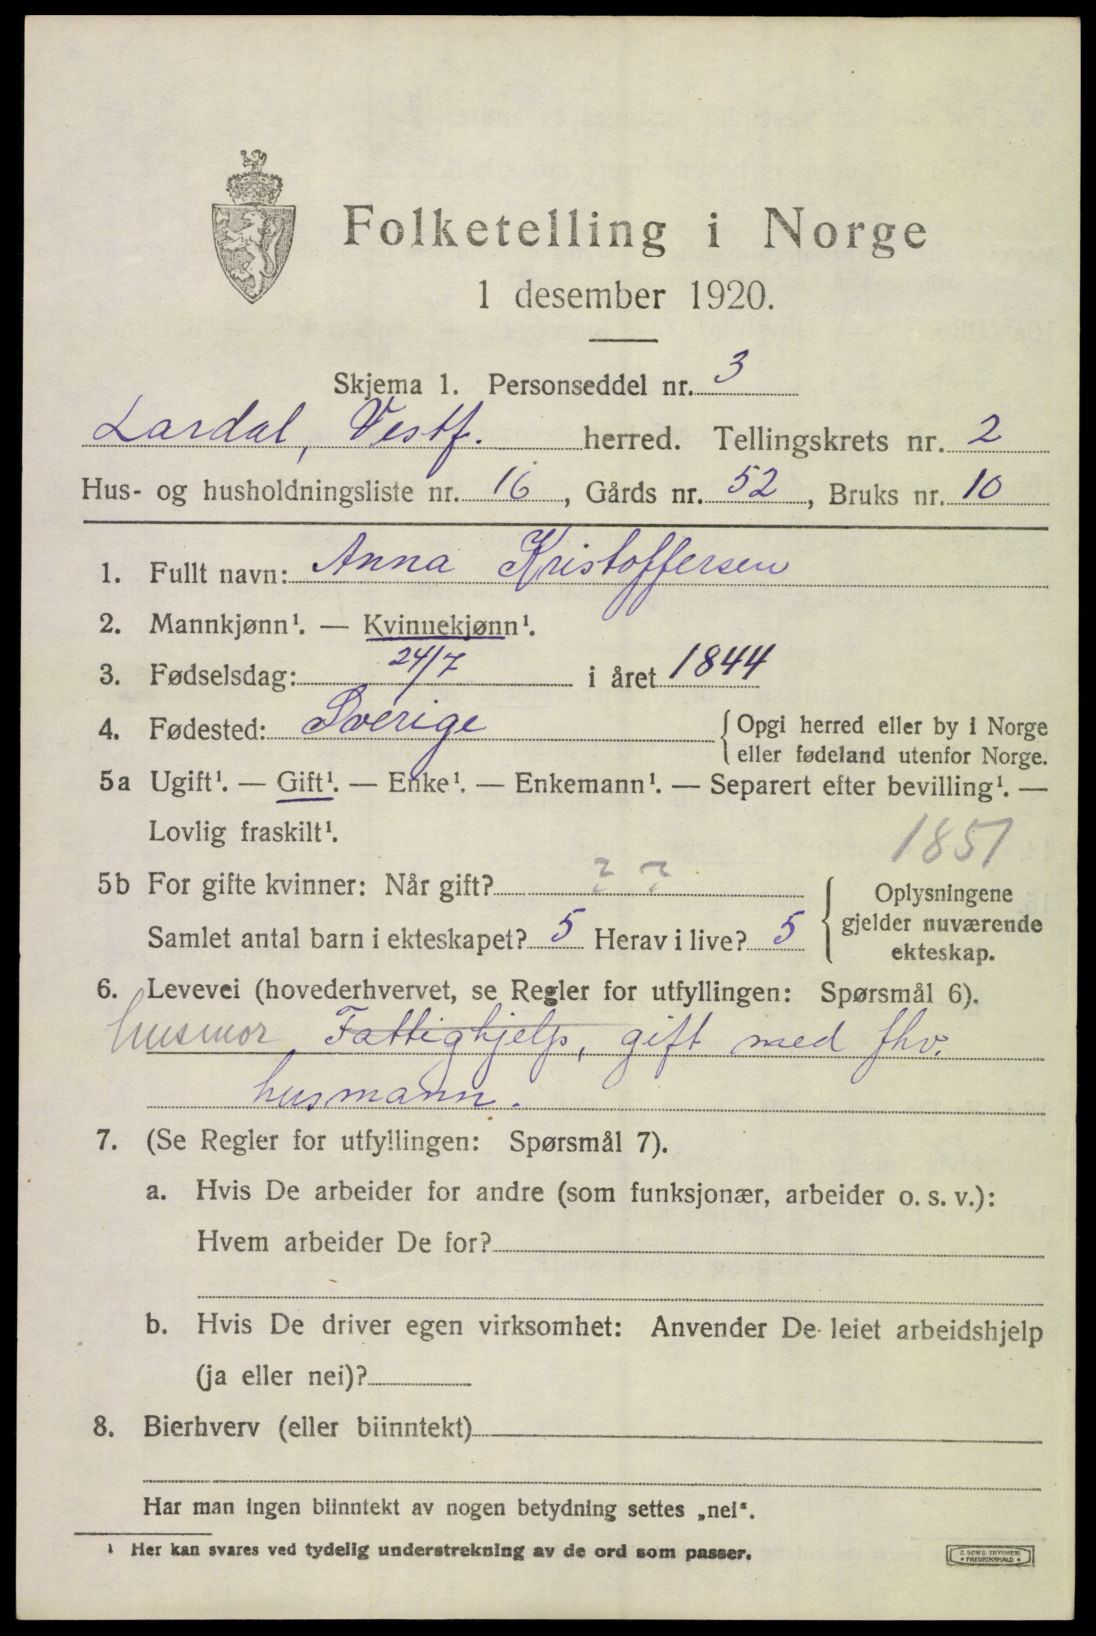 Folketelling i Norge
1 desember 1920.
Skjema 1. Personseddel nr. 3
Lardal, Vestf. herred. Tellingskrets nr. 2
Hus- og husholdningsliste nr. 16, Gårds nr. 52, Bruks nr. 10
1. Fullt navn: Anna Kristoffersen
2. Mannkjønn¹. — Kvinnekjønn¹.
3. Fødselsdag: 24/7 i året 1844
4. Fødested: Sverige {Opgi herred eller by i Norge
eller fødeland utenfor Norge.
5a Ugift¹. — Gift¹. — Enke¹. — Enkemann¹. — Separert efter bevilling¹. —
Lovlig fraskilt¹.
1851
5b For gifte kvinner: Når gift? ? ?
Samlet antal barn i ekteskapet? 5 Herav i live? 5
{Oplysningene
gjelder nuværende
ekteskap.
6. Levevei (hovederhvervet, se Regler for utfyllingen: Spørsmål 6).
husmor Fattighjelp, gift med fhv.
husmann.
7. (Se Regler for utfyllingen: Spørsmål 7).
a. Hvis De arbeider for andre (som funksjonær, arbeider o. s. v.):
Hvem arbeider De for?
b. Hvis De driver egen virksomhet: Anvender De leiet arbeidshjelp
(ja eller nei)?
8. Bierhverv (eller biinntekt)
Har man ingen biinntekt av nogen betydning settes „nei“.
¹ Her kan svares ved tydelig understrekning av de ord som passer.
FREDRIKSHALD